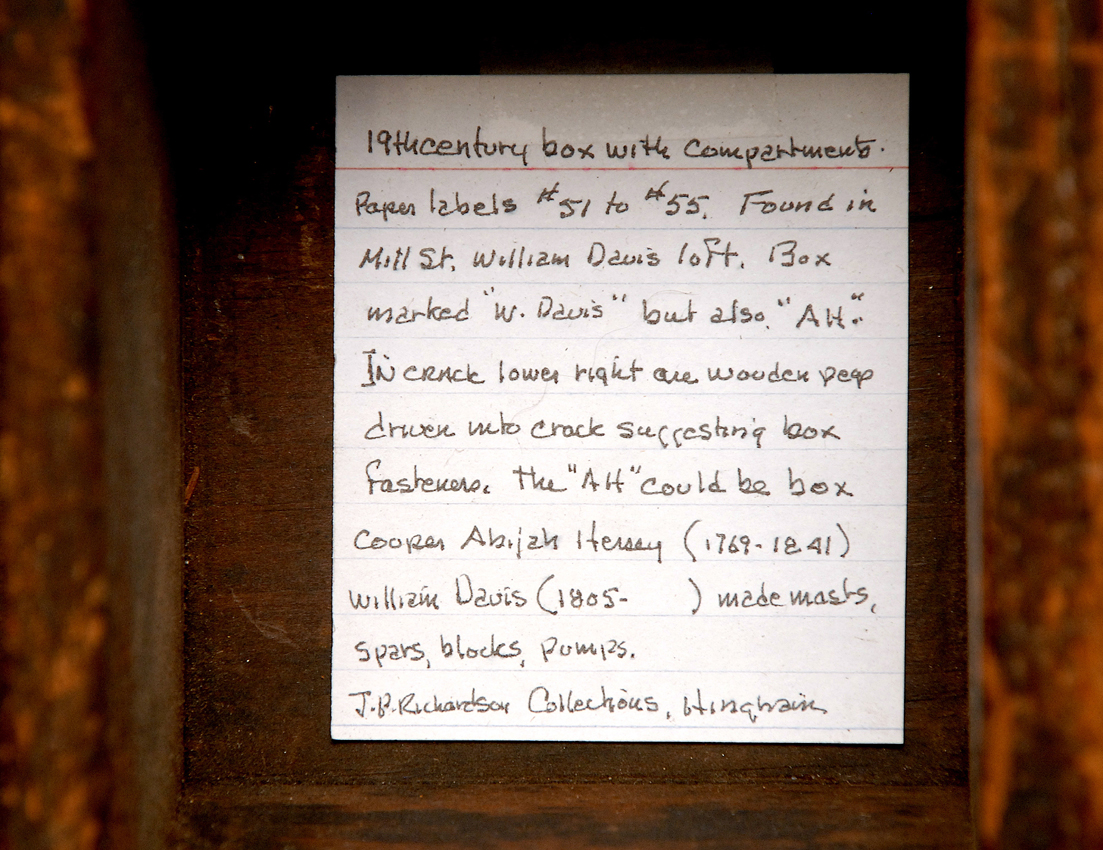 19th century box with compartments.
Paper labels #51 to #55. Found in
Mill St. William Davis loft. Box
marked "W. Davis" but also "AH".
In crack lower right are wooden pegs
driven into crack suggesting box
fasteners. The "AH" could be box
cooper Abijah Hersey (1769-1841)
William Davis (1805-    ) made masts,
spars, blocks, pumps.
J.P. Richardson Collections, Hingham